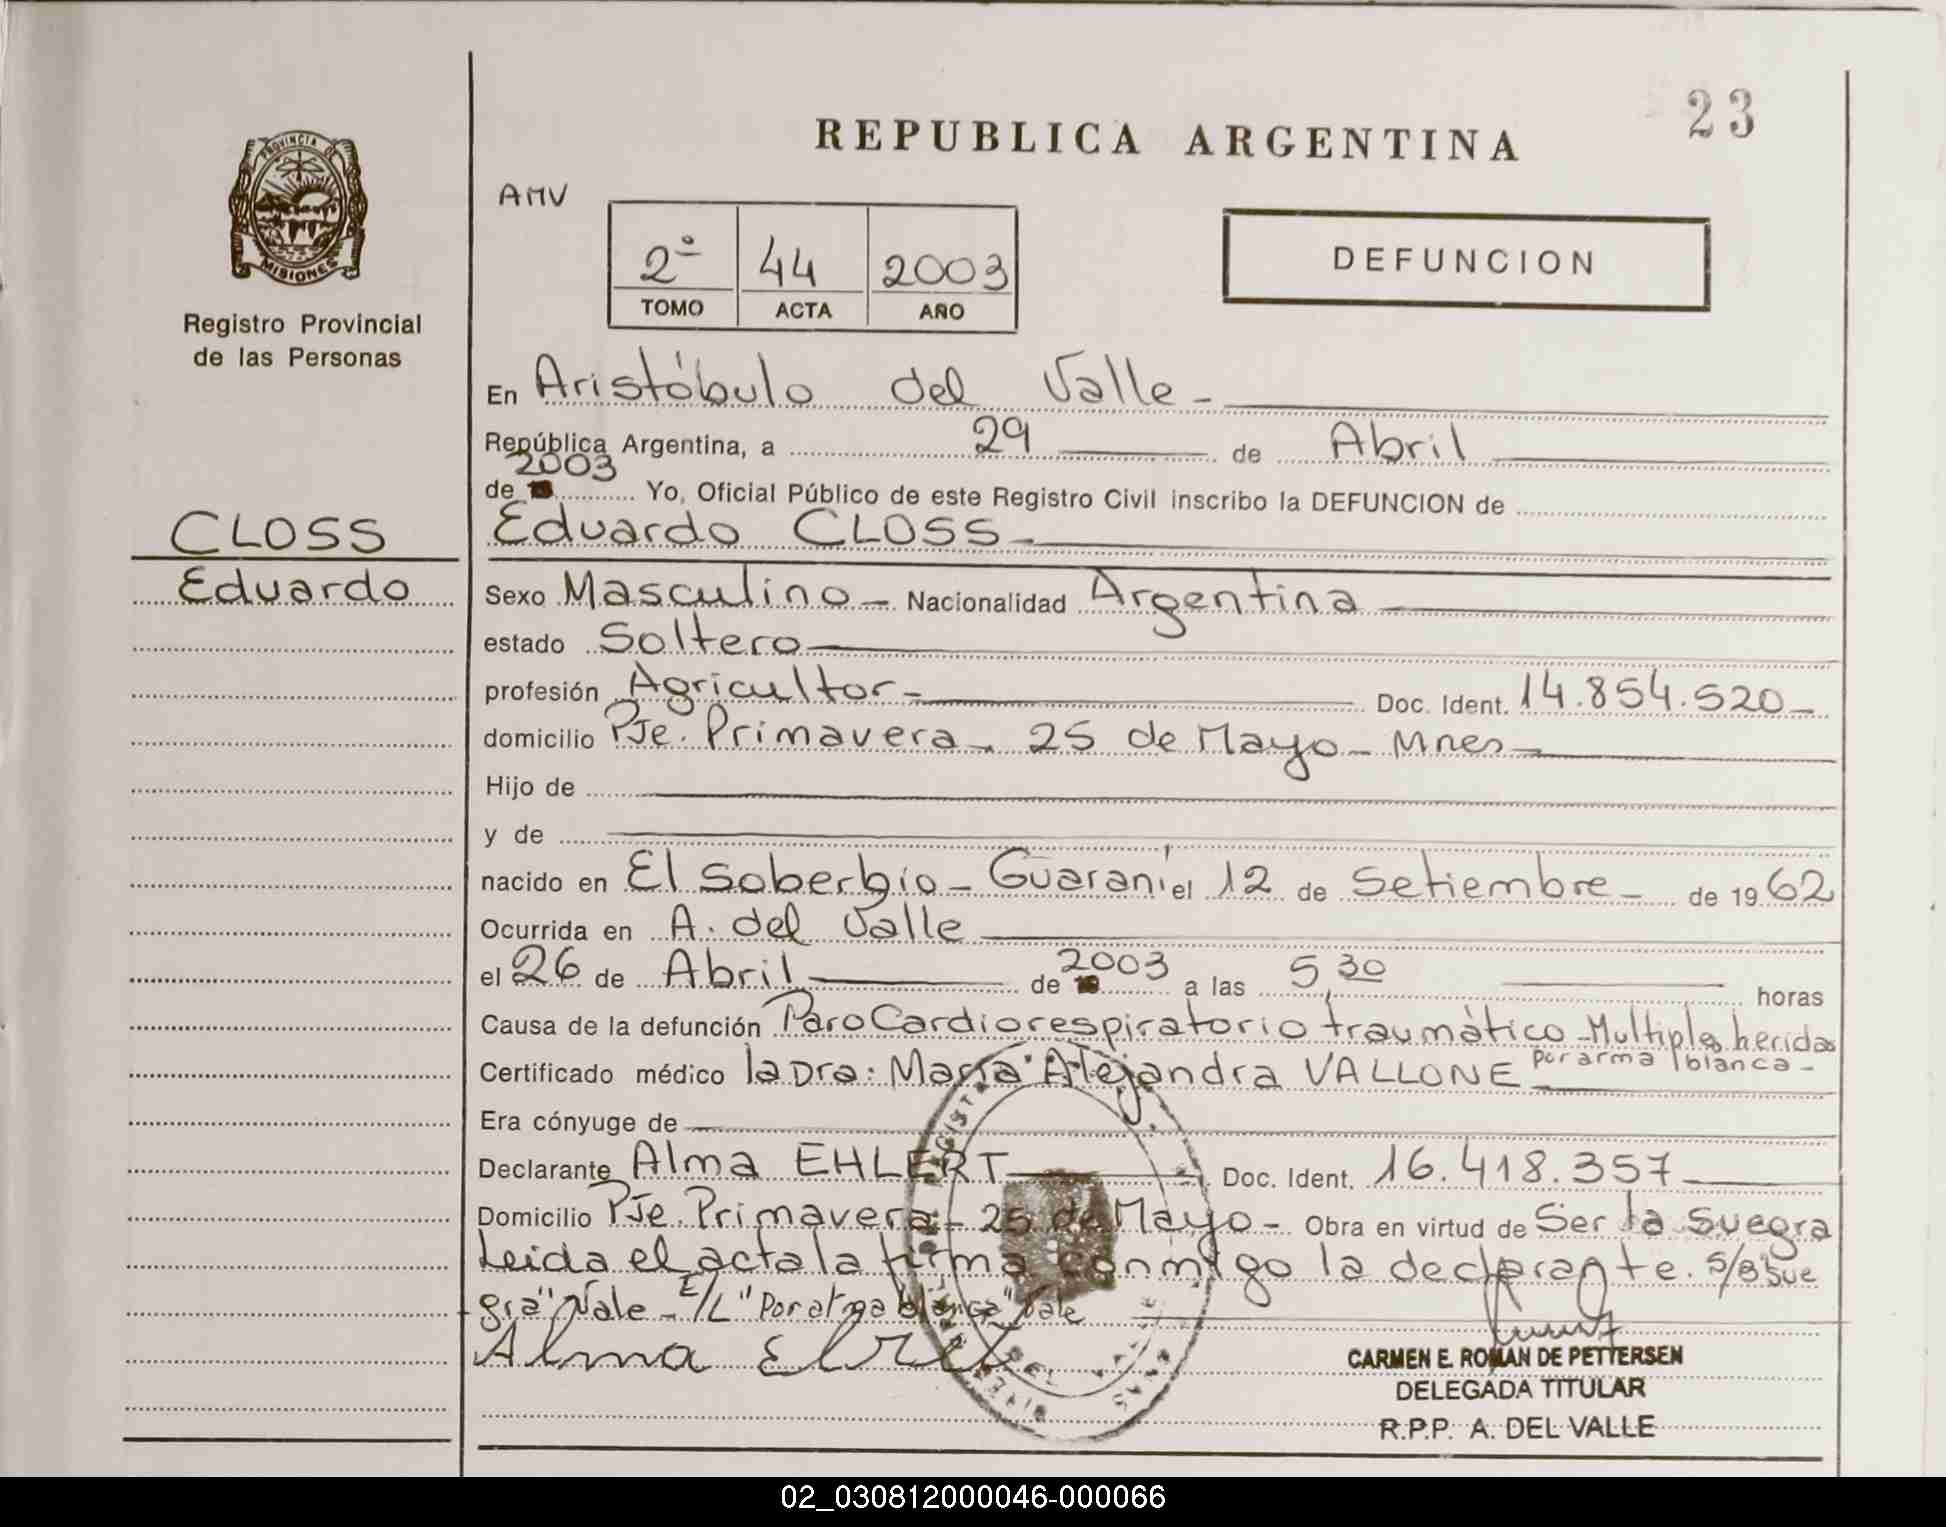 23
REPUBLICA ARGENTINA
PROVINCIA DE
MISIONES
Registro Provincial
de las Personas
AMV
2º 44 2003
TOMO ACTA AÑO
DEFUNCION
En Aristóbulo del Valle -
República Argentina, a 29 de Abril
2003
de 19 Yo, Oficial Público de este Registro Civil inscribo la DEFUNCION de
CLOSS
Eduardo
Eduardo CLOSS -
Sexo Masculino - Nacionalidad Argentina
estado Soltero
profesión Agricultor - Doc. Ident. 14.854.520 -
domicilio Pje. Primavera - 25 de Mayo - Mnes -
Hijo de
y de
nacido en El Soberbio - Guaraní el 12 de Setiembre - de 1962
Ocurrida en A. del Valle
el 26 de Abril de 2003 a las 5,30 horas
Causa de la defunción Paro Cardiorespiratorio traumático - Multiples heridas
por arma blanca -
Certificado médico la Dra: María Alejandra VALLONE
Era cónyuge de
Declarante Alma EHLERT Doc. Ident. 16.418.357
Domicilio Pje. Primavera - 25 de Mayo - Obra en virtud de Ser la suegra
Leida el acta la firma conmigo la declarante. S/B "Sue
gra" Vale - E/L "Por arma blanca" Vale
CARMEN E. ROMAN DE PETTERSEN
DELEGADA TITULAR
R.P.P. A. DEL VALLE
02_030812000046-000066